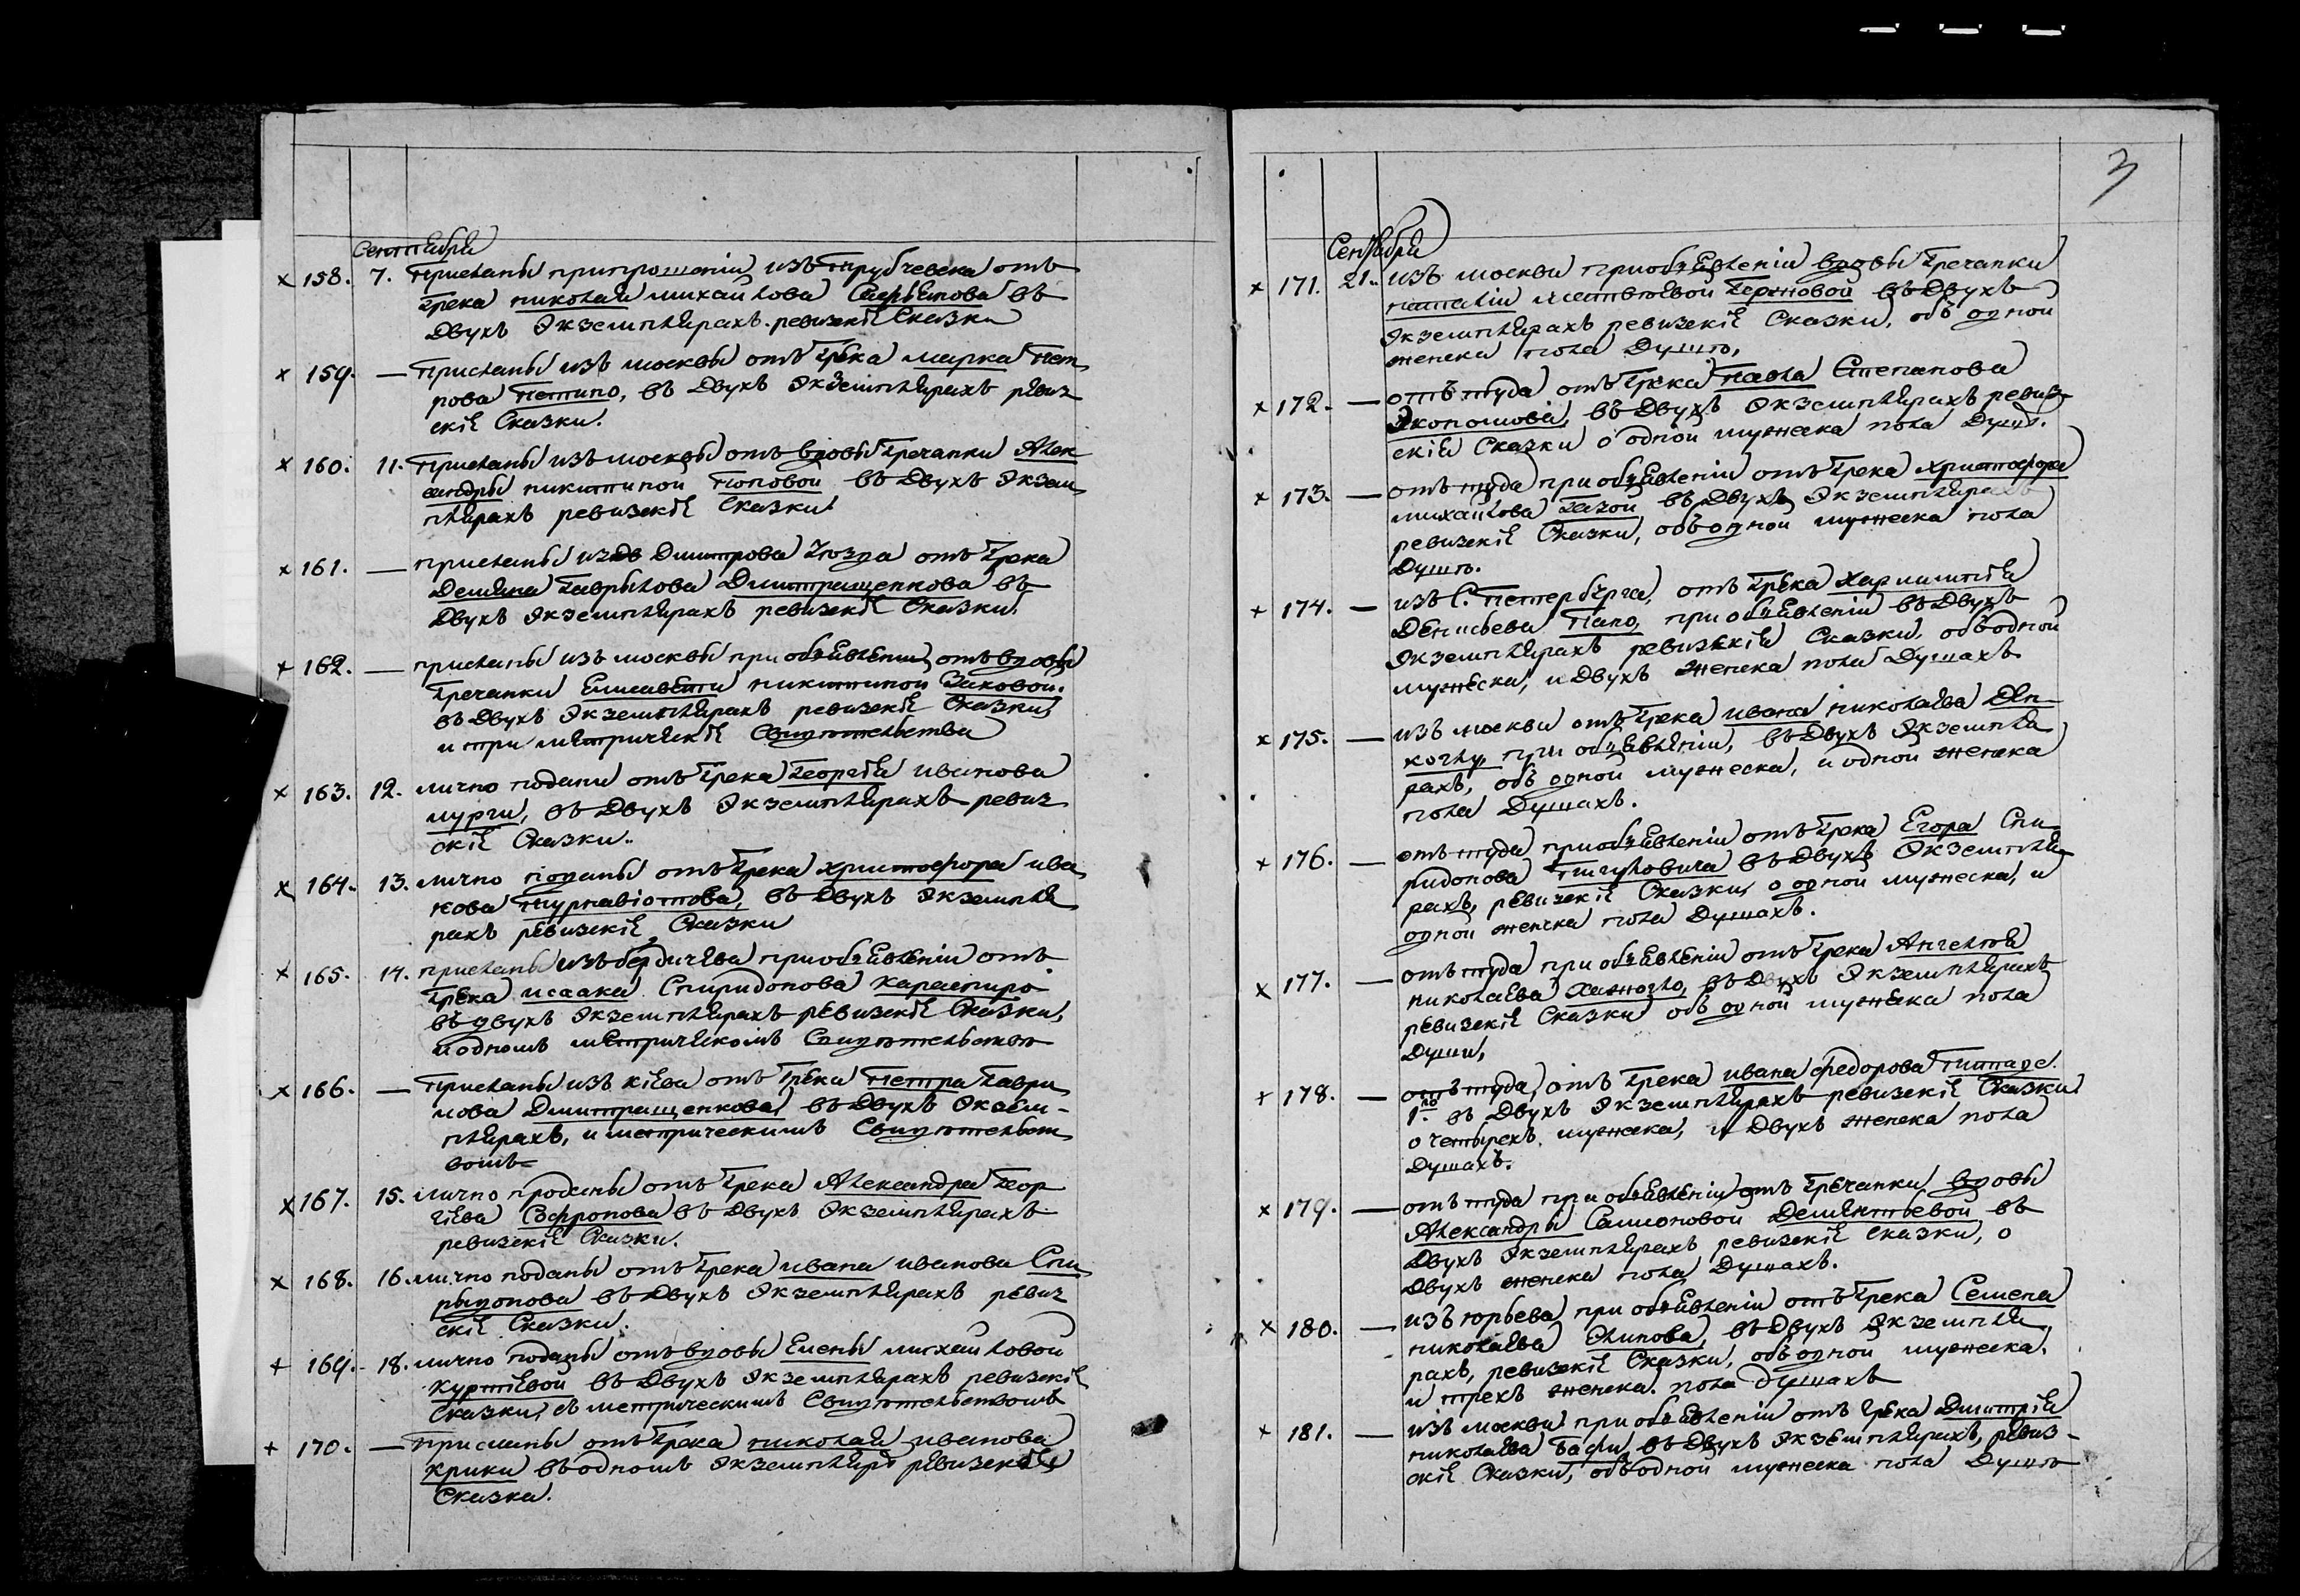 Сентября
× 158. 7. Присланы припрошеніи изъ трубчевска отъ
Грека николая михайлова Сафьянова въ
Двухъ Экземплярахъ ревизскіе Сказки
× 159. — Присланы изъ москвы отъ Грека марка Пет
рова Петино, въ Двухъ Экземплярахъ ревиз
скіе Сказки.
× 160. 11. Присланы изъ москвы отъ вдовы Гречанки Алек
сандры никитиной Поповой въ Двухъ Экзем
плярахъ ревизскіе Сказки
× 161. — присланы изъ Дмитрова отъ Грека
Демяна Гаврылова Дмитращенкова въ
Двухъ Экземплярахъ ревизскіе Сказки.
× 162. — присланы изъ москвы при объявленіи отъ вдовы
Гречанки Елисавети никитиной Заковой.
въ Двухъ Экземплярахъ ревизскіе Сказки,
и три метрическіе Свидетельства
× 163. 12. лично подани отъ Грека Георгія иванова
мурги, въ Двухъ Экземплярахъ ревиз
скіе Сказки.
× 164. 13. лично поданы отъ Грека христофора ива
нова Турнавіотова, въ Двухъ Экземпля
рахъ ревизскіе Сказки
× 165. 14. присланы изъ бердичева приобъявленіи отъ
Грека исаака Спиридонова Караспиро
въ двухъ Экземплярахъ ревизскіе Сказки,
и одномъ метрическомъ Свидетельствѣ
× 166. — Присланы изъ кіева отъ Грека Петра Гаври
лова Дмитращенкова въ Двухъ Экзем-
плярахъ, и метрическимъ Свидетельст
вомъ
× 167. 15. лично проданы отъ Грека Александра Геор
гіева Софронова въ Двухъ Экземплярахъ
ревизскіе Сказки.
× 168. 16. лично поданы отъ Грека ивана иванова Спи
рыдонова въ Двухъ Экземплярахъ ревиз
скіе Сказки.
+ 169. 18. лично поданы отъ вдовы Елены михайловой
Куртіевой въ Двухъ Экземплярахъ ревизскіе
Сказки, съ метрическимъ Свидетельствомъ
+ 170. — Присланы отъ Грека николая иванова
Крики въ одномъ Экземпляре ревизская
Сказка.
3
Сентября
× 171. 21. изъ москвы приобъявленіи вдовы Гречанки
наталіи матвѣевой въ Двухъ
Экземплярахъ ревизскіе Сказки, объ одной
женска пола Душѣ,
× 172. — отъ туда отъ Грека Павла Степанова
Экономова, въ Двухъ Экземплярахъ ревиз
скія Сказки о одной мужеска пола Душѣ.
× 173. — отъ туда при объявленіи отъ Грека христофора
михайлова въ Двухъ Экземплярахъ
ревизскіе Сказки, объ одной мужеска пола
Душѣ.
+ 174. — изъ С. Петербурга, отъ Грека Харлампія
Денисьева Папо, при объявленіи въ Двухъ
Экземплярахъ ревизскія Сказки, объ одной
мужеска, и Двухъ женска пола Душахъ
× 175. — изъ москвы отъ Грека ивана николаева Дели
коглу при объявленіи, въ Двухъ Экземпля
рахъ, объ одной мужеска, и одной женска
пола Душахъ.
+ 176. — отъ туда приобъявленіи отъ Грека Егора Спи
ридонова въ Двухъ Экземпля
рахъ, ревизскіе Сказки о одной мужеска, и
одной женска пола Душахъ.
× 177. — отъ туда при объявленіи отъ Грека Ангелтя
николаева въ Двухъ Экземплярахъ
ревизскіе Сказки объ одной мужеска пола
Души,
+ 178. — отъ туда, отъ Грека ивана Федорова
1го въ Двухъ Экземплярахъ ревизскіе Сказки
о четырехъ мужеска, и Двухъ женска пола
Душахъ.
× 179. — отъ туда при объявленіи отъ Гречанки вдовы
Александры Самоновой Дементьевой въ
Двухъ Экземплярахъ ревизскіе Сказки, о
Двухъ женска пола Душахъ.
× 180. — изъ юрьева при объявленіи отъ Грека Семена
николаева въ Двухъ Экземпля
рахъ, ревизскіе Сказки, объ одной мужеска,
и трехъ женска пола Душахъ
+ 181. — изъ москвы при объявленіи отъ Грека Дмитрія
николаева Бафи въ Двухъ Экземплярахъ, ревиз-
скіе Сказки, объ одной мужеска пола Душѣ